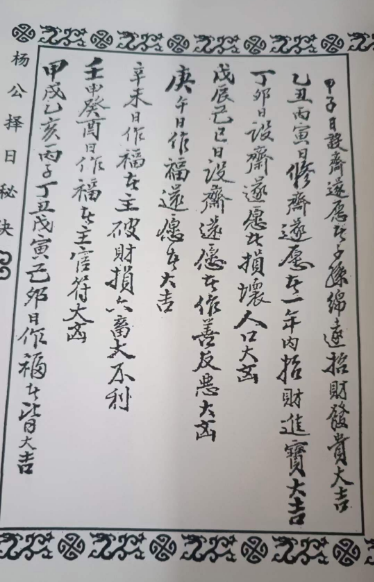 甲子日設齊還愿者子孫綿遠招財發貴大吉
乙丑丙寅日修齊還愿者一年内招財進寶大吉
丁卯日設齊還愿者損壞人口大凶
戊辰己巳日設齊還愿者作善反惡大凶
庚午日作福還愿者大吉
辛未日作福者主破財損六畜大不利
壬申癸酉日作福者主官符大凶
甲戌乙亥丙子丁丑戊寅己卯日作福者皆大吉
杨公择日秘诀